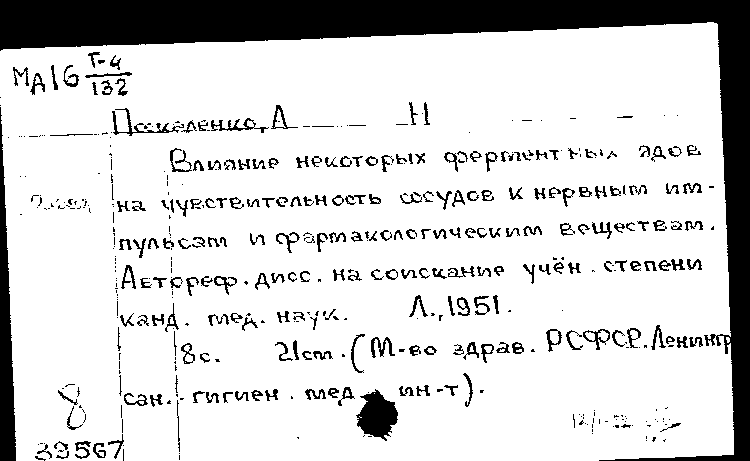 МД16 Г-4/132
Паскаленко, А Н
Влияние некоторых ферментных ядов
на чувствительность сосудов к нервным им-
пульсам и фармакологическим веществам.
Автореф. дисс. на соискание учён. степени
канд. мед. наук. Л., 1951.
8с. 21cm. (М-во здрав. РСФСР. Ленингр
сан.-гигиен. мед. ин-т).
8
39567